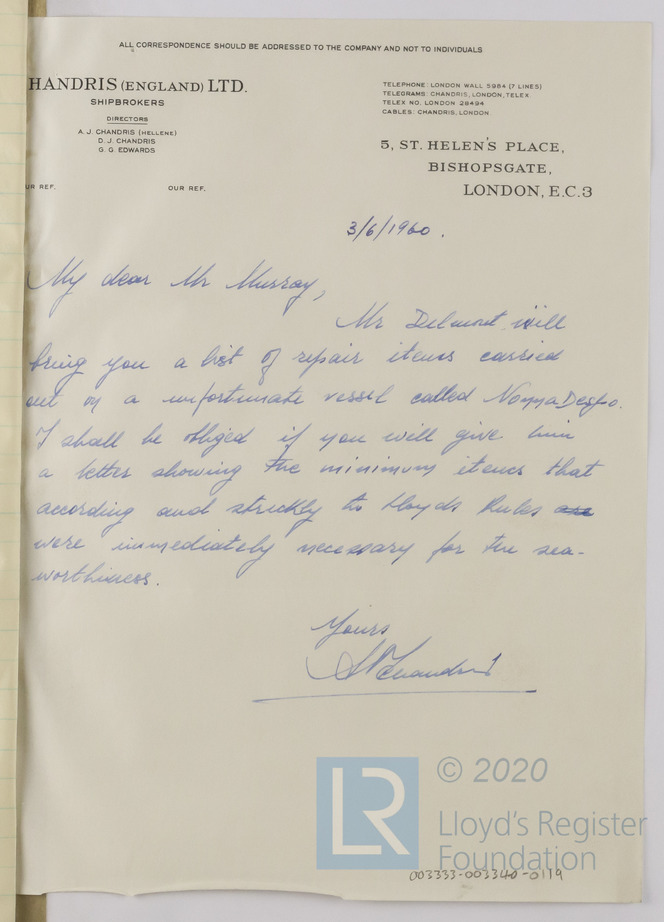 ALL CORRESPONDENCE SHOULD BE ADDRESSED TO THE COMPANY AND NOT TO INDIVIDUALS
HANDRIS (ENGLAND) LTD.
SHIPBROKERS
DIRECTORS
A. J. CHANDRIS (HELLENE)
D. J. CHANDRIS
G. G. EDWARDS
TELEPHONE: LONDON WALL 5984 (7 LINES)
TELEGRAMS: CHANDRIS, LONDON, TELEX
TELEX NO. LONDON 28494
CABLES: CHANDRIS, LONDON
5, ST. HELEN'S PLACE,
BISHOPSGATE,
LONDON, E.C.3
UR REF.
OUR REF.
3/6/1960.
My dear Mr Murray,
Mr Delmont will
bring you a list of repair items carried
out on a unfortunate vessel called Nonna Despo.
I shall be obliged if you will give him
a letter showing the minimum items that
according and strickly to Lloyds Rules are
were immediately necessary for the sea-
worthiness.
Yours
Chandris
LR
© 2020
Lloyd's Register
Foundation
003333-003340-0119